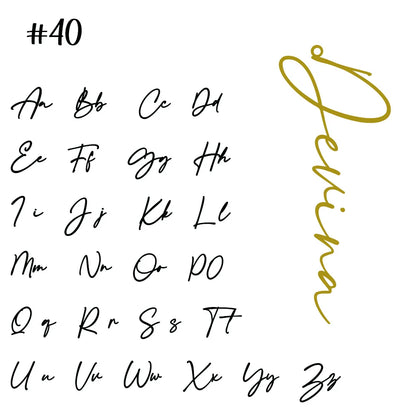 #40
Aa Bb Cc Dd
Ee Ff Gg Hh
I i J j Kk Ll
Mm Nn Oo PO
Q q R r S s Tt
U u Vv Ww Xx Yy Zz
Devina